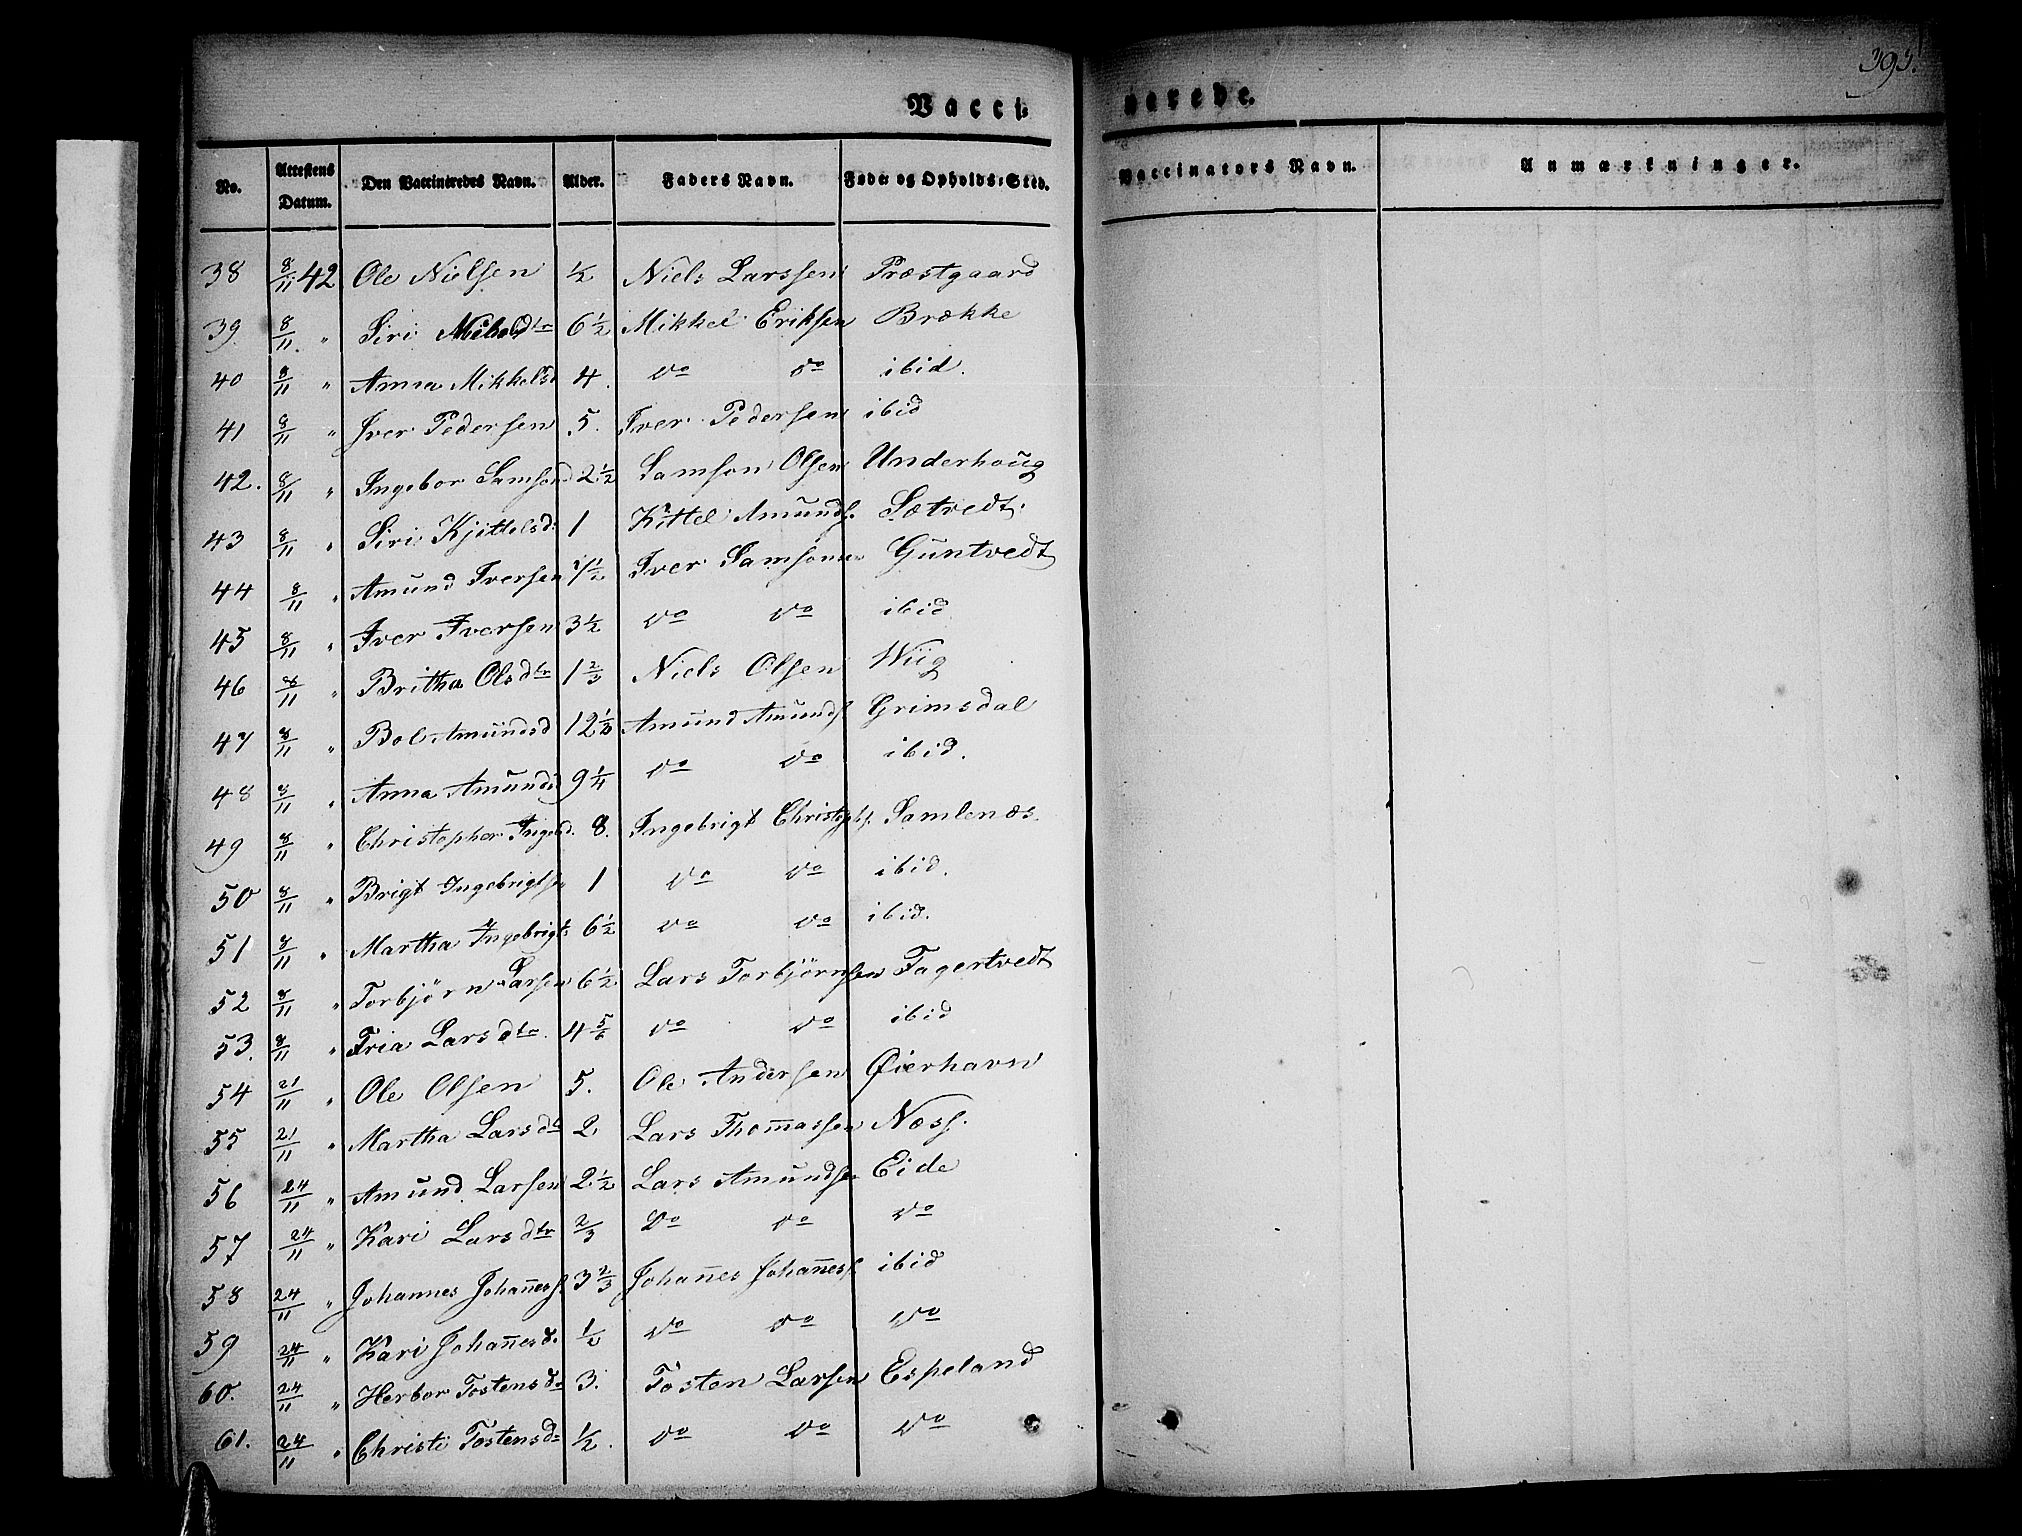 393.
Vacci-
nerede.
No. Attestens Datum. Den Vaccineredes Navn. Alder. Faders Navn. Føde og Opholds-Sted. Vaccinators Navn. Anmærkninger.
38 8/11 42 Ole Nielsen ½ Niels Larssen Præstgaard
39 8/11 " Siri 6½ Mikkel Eriksen Brække
40 8/11 " Anna Mikkelsd 4. do do ibid.
41 8/11 " Iver Pedersen 5. Iver Pedersen ibid
42. 8/11 " Ingebor Samsond 2½ Samson Olsen Underhoug
43 8/11 " Siri Kjittelsd: 1 Kittel Amunds. Sætvedt.
44 8/11 " Amund Iversen ½ Iver Samsonsen Guntvedt
45 8/11 " Iver Iversen 3½ do do ibid
46 8/11 " Britha Olsdtr 1⅔ Niels Olsen Wiig
47 8/11 " Bol Amundsd 12½ Amund Amunds Grimsdal
48 8/11 " Anna Amundsd 9¼ do do ibid.
49 8/11 " Christopher Ingebr. 8. Ingebrigt Christophs. Samlenæs.
50 8/11 " Brigt Ingebrigtsen 1 do do ibid.
51 8/11 " Martha Ingebrigts 6½ do do ibid.
52 8/11 " Torbjörn Larsen 6½ Lars Torbjörnsen Fagertvedt
53. 8/11 " Tria Larsdtr. 4⅚ do do ibid
54 21/11 " Ole Olsen 5. Ole Andersen Øierhavn
55 21/11 " Martha Larsdtr 2 Lars Thom̅assen Næss.
56 24/11 " Amund Larsen 2½ Lars Amundsen Eide
57 24/11 " Kari Larsdtr ⅔ Do do do
58 24/11 " Johannes Johan̅ess 3⅔ Johan̅es Johan̅ess. ibid
59 24/11 " Kari Johan̅esd. ½ do do do
60. 24/11 " Herbor Tostensd. 3. Tosten Larsen Espeland
61. 24/11 " Christi Tostensd: ½. do do do